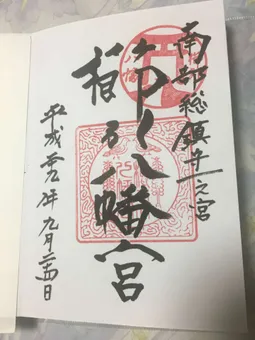 南部総鎮守一之宮
櫛引八幡宮
平成廿九年九月二十四日